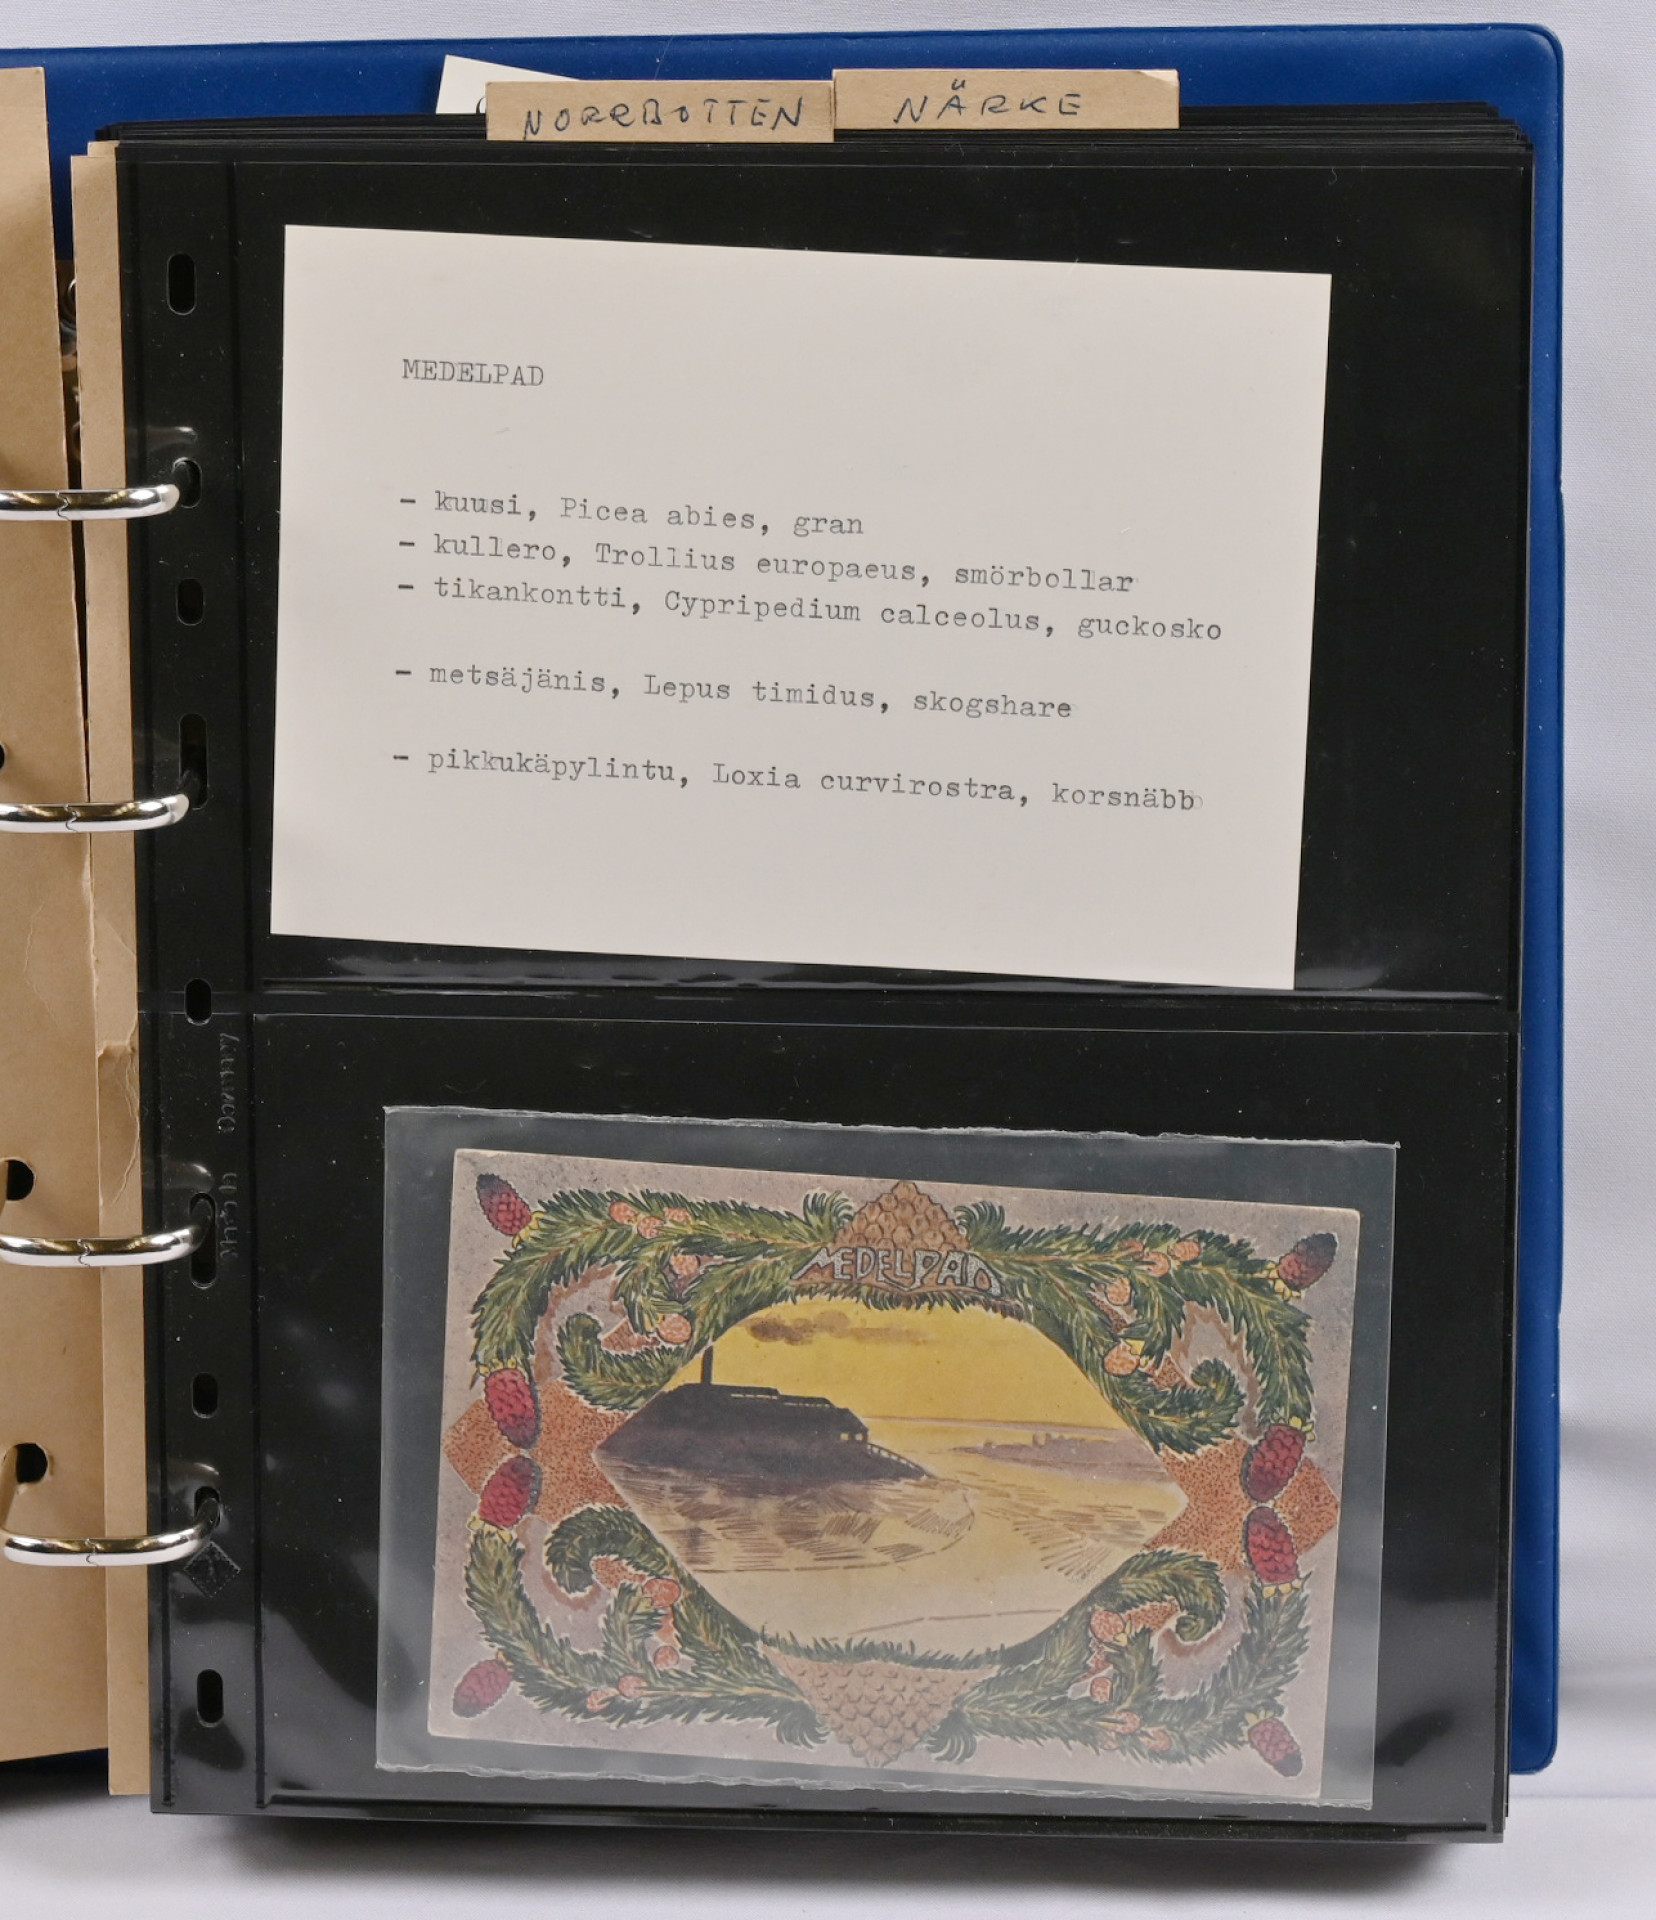 NORRBOTTEN
NÄRKE
MEDELPAD
- kuusi, Picea abies, gran
- kullero, Trollius europaeus, smörbollar
- tikankontti, Cypripedium calceolus, guckosko
- metsäjänis, Lepus timidus, skogshare
- pikkukäpylintu, Loxia curvirostra, korsnäbb
MEDELPAD